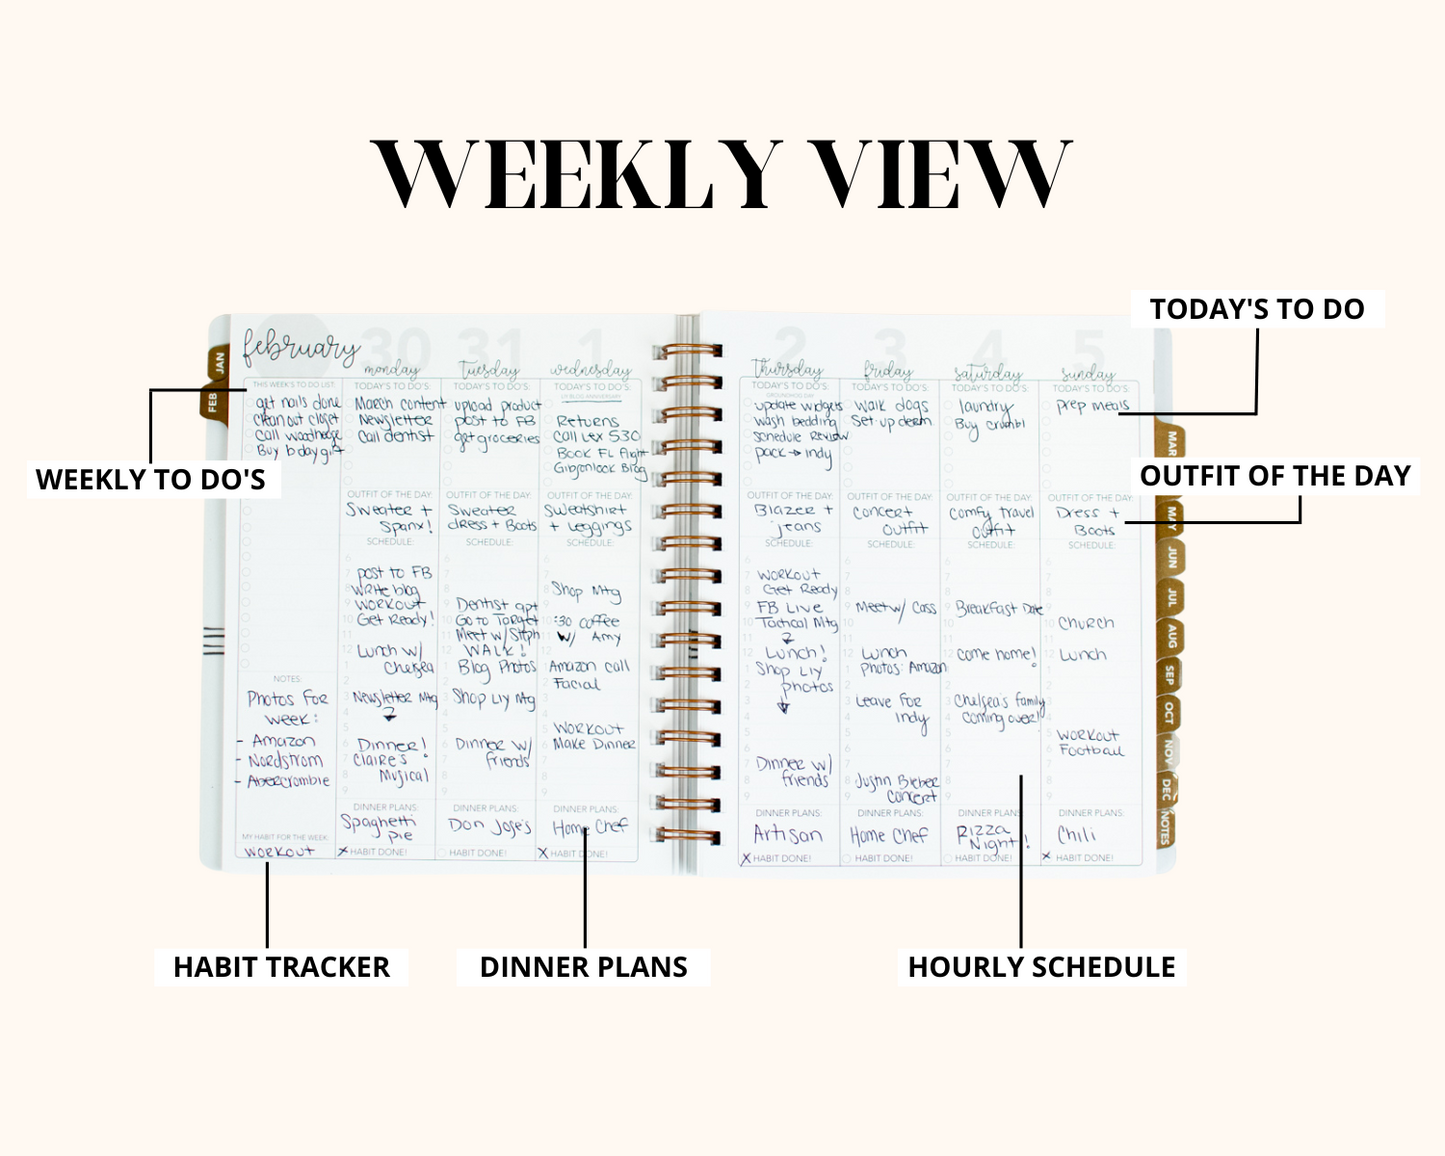 WEEKLY VIEW
TODAY'S TO DO
OUTFIT OF THE DAY
WEEKLY TO DO'S
HABIT TRACKER
DINNER PLANS
HOURLY SCHEDULE
JAN
FEB
february
THIS WEEK'S TO DO LIST:
get nails done
clean out closet
Call
Buy bday gift
NOTES:
Photos For
week:
- Amazon
- Nordstrom
- Abercrombie
MY HABIT FOR THE WEEK:
WORKOUT
30
monday
TODAY'S TO DO'S:
March content
Newsletter
Call dentist
OUTFIT OF THE DAY:
Sweater +
Spanx!
SCHEDULE:
6
7 post to FB
8 write blog
9 WORKOUT
10 Get Ready!
11
12 Lunch w/
1 Chelsea
2
3 Newsletter Mtg
4
5
6 Dinner!
7 Claire's
8 Musical
9
DINNER PLANS:
Spaghetti
pie
X HABIT DONE!
31
Tuesday
TODAY'S TO DO'S:
upload product
post to FB
get groceries
OUTFIT OF THE DAY:
Sweater
dress + Boots
SCHEDULE:
Dentist apt
Go to Target
Meet w/ Steph
WALK!
Blog Photos
Shop LIY Mtg
Dinner w/
friends
DINNER PLANS:
Don Jose's
HABIT DONE!
1
wednesday
TODAY'S TO DO'S:
Returns
Call Lex 530
Book FL flight
Blog
OUTFIT OF THE DAY:
Sweatshirt
+ Leggings
SCHEDULE:
Shop Mtg
:30 coffee
w/ Amy
Amazon call
Facial
WORKOUT
Make Dinner
DINNER PLANS:
Home Chef
X HABIT DONE!
2
Thursday
TODAY'S TO DO'S:
GROUNDHOG DAY
update widgets
wash bedding
schedule Review
pack → indy
OUTFIT OF THE DAY:
Blazer +
jeans
SCHEDULE:
WORKOUT
Get Ready
FB Live
Tactical Mtg
Lunch!
Shop LIY
photos
Dinner w/
friends
DINNER PLANS:
Artisan
X HABIT DONE!
3
friday
TODAY'S TO DO'S:
walk dogs
Set up
OUTFIT OF THE DAY:
concert
outfit
SCHEDULE:
Meet w/ Cass
Lunch
Photos: Amazon
Leave for
Indy
Justin Bieber
concert
DINNER PLANS:
Home Chef
HABIT DONE!
4
saturday
TODAY'S TO DO'S:
laundry
Buy crumbl
OUTFIT OF THE DAY:
comfy travel
outfit
SCHEDULE:
Breakfast Date
come home!
Chelsea's family
coming over!
DINNER PLANS:
Pizza
Night!
HABIT DONE!
5
sunday
TODAY'S TO DO'S:
prep meals
OUTFIT OF THE DAY:
Dress +
Boots
SCHEDULE:
CHURCH
Lunch
WORKOUT
Football
DINNER PLANS:
Chili
X HABIT DONE!
MAR
MAY
JUN
JUL
AUG
SEP
OCT
NOV
DEC
NOTES